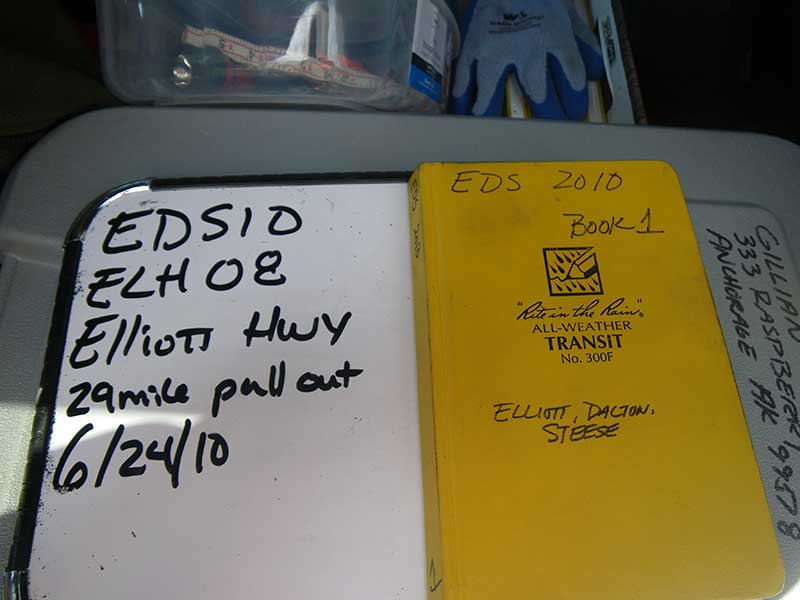 EDS10
ELH 08
Elliott HWY
29 mile pull out
6/24/10
EDS 2010
BOOK 1
"Rite in the Rain"
ALL-WEATHER
TRANSIT
No. 300F
ELLIOTT, DALTON,
STEESE
1
GILLIAN
333 RASPBERRY
ANCHORAGE AK 99578